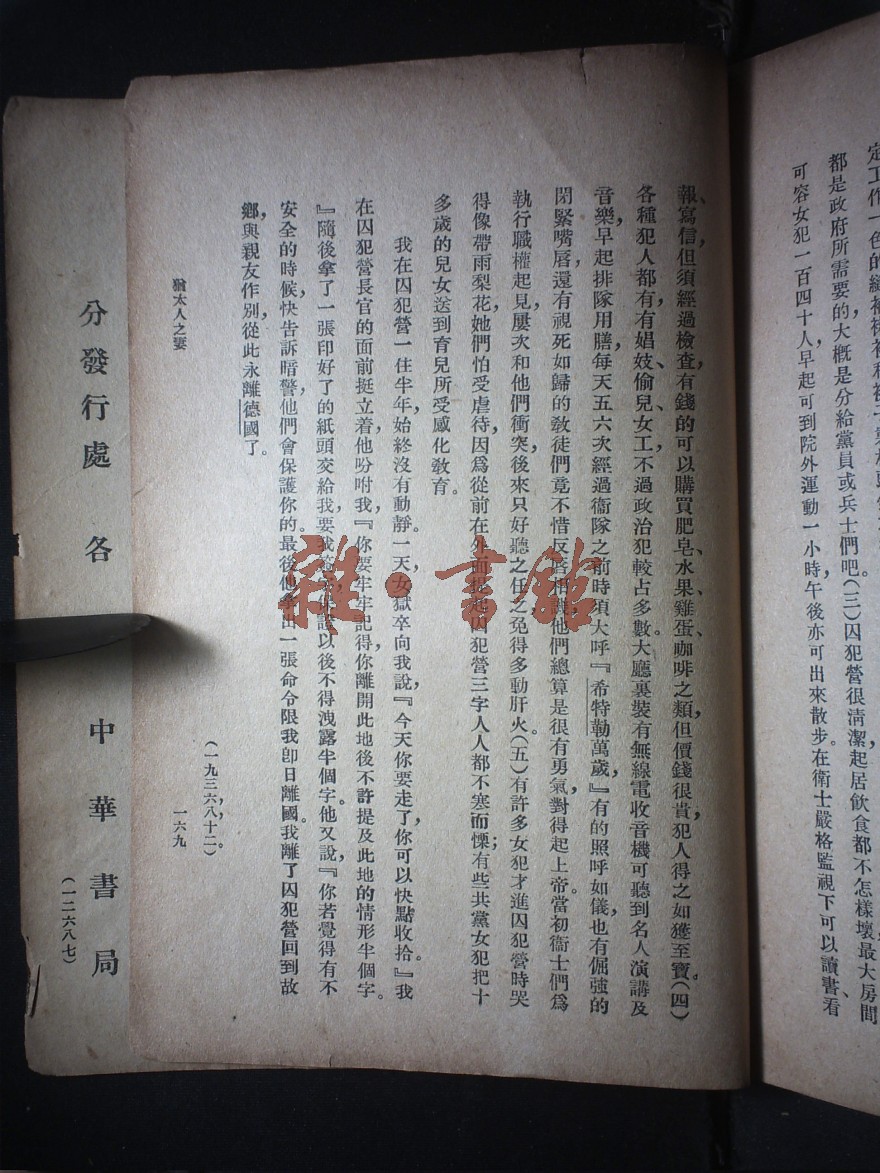 定工作一色的縫補
都是政府所需要的大概是分給黨員或兵士們吧。(三)囚犯營很清潔起居飲食都不怎樣壞，最大房間
可容女犯一百四十人，早起可到院外運動一小時，午後亦可出來散步。在衛士嚴格監視下可以讀書、看
報、寫信，但須經過檢查，有錢的可以購買肥皂、水果、雞蛋、咖啡之類，但價錢很貴，犯人得之如獲至寶。(四)
各種犯人都有，有娼妓、偷兒、女工，不過政治犯較占多數。大廳裏裝有無線電收音機，可聽到名人演講及
音樂，早起排隊用膳，每天五六次經過衞隊之前時，須大呼『希特勒萬歲』，有的照呼如儀，也有倔強的
閉緊嘴唇，還有視死如歸的敎徒們竟不惜反唇相譏，他們總算是很有勇氣，對得起上帝。當初衞士們爲
執行職權起見，屢次和他們衝突，後來只好聽之任之，免得多動肝火。(五)有許多女犯才進囚犯營時，哭
得像帶雨梨花，她們怕受虐待，因爲從前在外面提起囚犯營三字，人人都不寒而慄；有些共黨女犯把十
多歲的兒女送到育兒所受感化敎育。
我在囚犯營一住半年，始終沒有動靜。一天，女獄卒向我說，『今天你要走了，你可以快點收拾。』我
在囚犯營長官的面前挺立着，他吩咐我，『你要牢牢記得，你離開此地後，不許提及此地的情形半個字。
』隨後拿了一張印好了的紙頭交給我，要我簽字保證以後不得洩露半個字。他又說，『你若覺得有不
安全的時候，快告訴暗警，他們會保護你的。』最後他拿出一張命令，限我卽日離國。我離了囚犯營，回到故
鄉，與親友作別，從此永離德國了。
(一九三六，八，十二。)
猶太人之妻
一六九
分發行處 各 中華書局
(一二六八七)